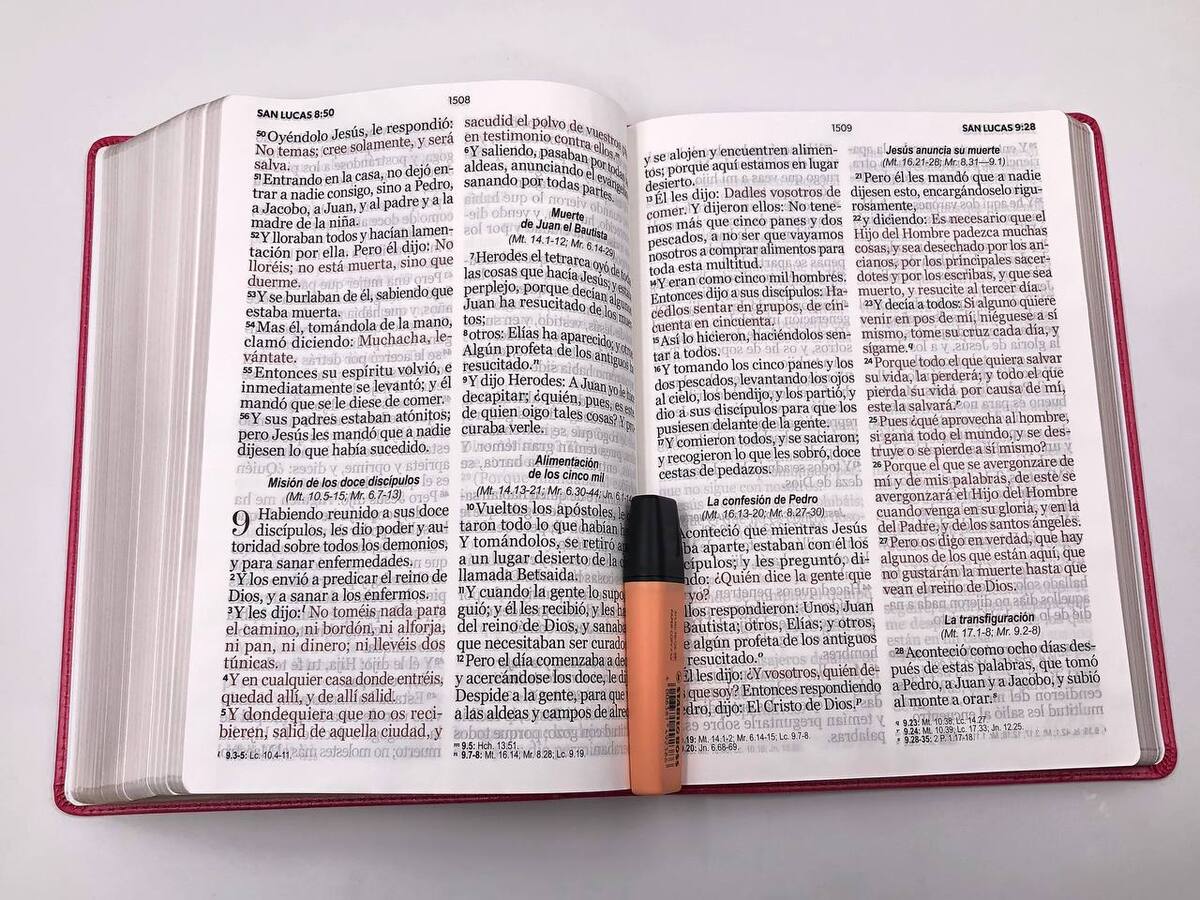 SAN LUCAS 8:50
1508
50 Oyéndolo Jesús, le respondió:
No temas; cree solamente, y será
salva.
51 Entrando en la casa, no dejó en-
trar a nadie consigo, sino a Pedro,
a Jacobo, a Juan, y al padre y a la
madre de la niña.
52 Y lloraban todos y hacían lamen-
tación por ella. Pero él dijo: No
lloréis; no está muerta, sino que
duerme.
53 Y se burlaban de él, sabiendo que
estaba muerta.
54 Mas él, tomándola de la mano,
clamó diciendo: Muchacha, le-
vántate.
55 Entonces su espíritu volvió, e
inmediatamente se levantó; y él
mandó que se le diese de comer.
56 Y sus padres estaban atónitos;
pero Jesús les mandó que a nadie
dijesen lo que había sucedido.
Misión de los doce discípulos
(Mt. 10.5-15; Mr. 6.7-13)
9 Habiendo reunido a sus doce
discípulos, les dio poder y au-
toridad sobre todos los demonios,
y para sanar enfermedades.
2 Y los envió a predicar el reino de
Dios, y a sanar a los enfermos.
3 Y les dijo: No toméis nada para
el camino, ni bordón, ni alforja,
ni pan, ni dinero; ni llevéis dos
túnicas.
4 Y en cualquier casa donde entréis,
quedad allí, y de allí salid.
5 Y dondequiera que no os reci-
bieren, salid de aquella ciudad, y
l 9.3-5: Lc. 10.4-11.
sacudid el polvo de vuestros
en testimonio contra ellos.
6 Y saliendo, pasaban por todas
aldeas, anunciando el evange
sanando por todas partes.
Muerte
de Juan el Bautista
(Mt. 14.1-12; Mr. 6.14-29)
7 Herodes el tetrarca oyó de
las cosas que hacía Jesús; y
perplejo, porque decían
Juan ha resucitado de los
tos;
8 otros: Elías ha aparecido; y
Algún profeta de los antiguos
resucitado.
9 Y dijo Herodes: A Juan yo le
decapitar; ¿quién, pues, es
de quien oigo tales cosas?
curaba verle.
Alimentación
de los cinco mil
(Mt. 14.13-21; Mr. 6.30-44; Jn. 6.1-
10 Vueltos los apóstoles, le
taron todo lo que habían
Y tomándolos, se retiró
a un lugar desierto de la
llamada Betsaida.
11 Y cuando la gente lo supo
guió; y él les recibió, y les
del reino de Dios, y sanaba
que necesitaban ser
12 Pero el día comenzaba a
y acercándose los doce, le
Despide a la gente, para que
a las aldeas y campos de
m 9.5: Hch. 13:51.
n 9.7-8: Mt. 16.14; Mr. 8.28; Lc. 9.19.
1509
SAN LUCAS 9:28
y se alojen y encuentren alimen-
tos; porque aquí estamos en lugar
desierto.
13 Él les dijo: Dadles vosotros de
comer. Y dijeron ellos: No tene-
mos más que cinco panes y dos
pescados, a no ser que vayamos
nosotros a comprar alimentos para
toda esta multitud.
14 Y eran como cinco mil hombres.
Entonces dijo a sus discípulos: Ha-
cedlos sentar en grupos, de cin-
cuenta en cincuenta.
15 Así lo hicieron, haciéndolos sen-
tar a todos.
16 Y tomando los cinco panes y los
dos pescados, levantando los ojos
al cielo, los bendijo, y los partió, y
dio a sus discípulos para que los
pusiesen delante de la gente.
17 Y comieron todos, y se saciaron;
y recogieron lo que les sobró, doce
cestas de pedazos.
La confesión de Pedro
(Mt. 16.13-20; Mr. 8.27-30)
Aconteció que mientras Jesús
ba aparte, estaban con él los
cípulos; y les preguntó, di-
ndo: ¿Quién dice la gente que
yo?
llos respondieron: Unos, Juan
Bautista; otros, Elías; y otros,
e algún profeta de los antiguos
resucitado.
Él les dijo: ¿Y vosotros, quién de-
que soy? Entonces respondiendo
edro, dijo: El Cristo de Dios.
.19: Mt. 14.1-2; Mr. 6.14-15; Lc. 9.7-8.
.20: Jn. 6.68-69.
Jesús anuncia su muerte
(Mt. 16.21-28; Mr. 8.31—9.1)
21 Pero él les mandó que a nadie
dijesen esto, encargándoselo rigu-
rosamente,
22 y diciendo: Es necesario que el
Hijo del Hombre padezca muchas
cosas, y sea desechado por los an-
cianos, por los principales sacer-
dotes y por los escribas, y que sea
muerto, y resucite al tercer día.
23 Y decía a todos: Si alguno quiere
venir en pos de mí, niéguese a sí
mismo, tome su cruz cada día, y
sígame.
24 Porque todo el que quiera salvar
su vida, la perderá; y todo el que
pierda su vida por causa de mí,
este la salvará.
25 Pues ¿qué aprovecha al hombre,
si gana todo el mundo, y se des-
truye o se pierde a sí mismo?
26 Porque el que se avergonzare de
mí y de mis palabras, de este se
avergonzará el Hijo del Hombre
cuando venga en su gloria, y en la
del Padre, y de los santos ángeles.
27 Pero os digo en verdad, que hay
algunos de los que están aquí, que
no gustarán la muerte hasta que
vean el reino de Dios.
La transfiguración
(Mt. 17.1-8; Mr. 9.2-8)
28 Aconteció como ocho días des-
pués de estas palabras, que tomó
a Pedro, a Juan y a Jacobo, y subió
al monte a orar.
q 9.23: Mt. 10.38; Lc. 14.27.
r 9.24: Mt. 10.39; Lc. 17.33; Jn. 12.25.
s 9.28-35: 2 P. 1:17-18.